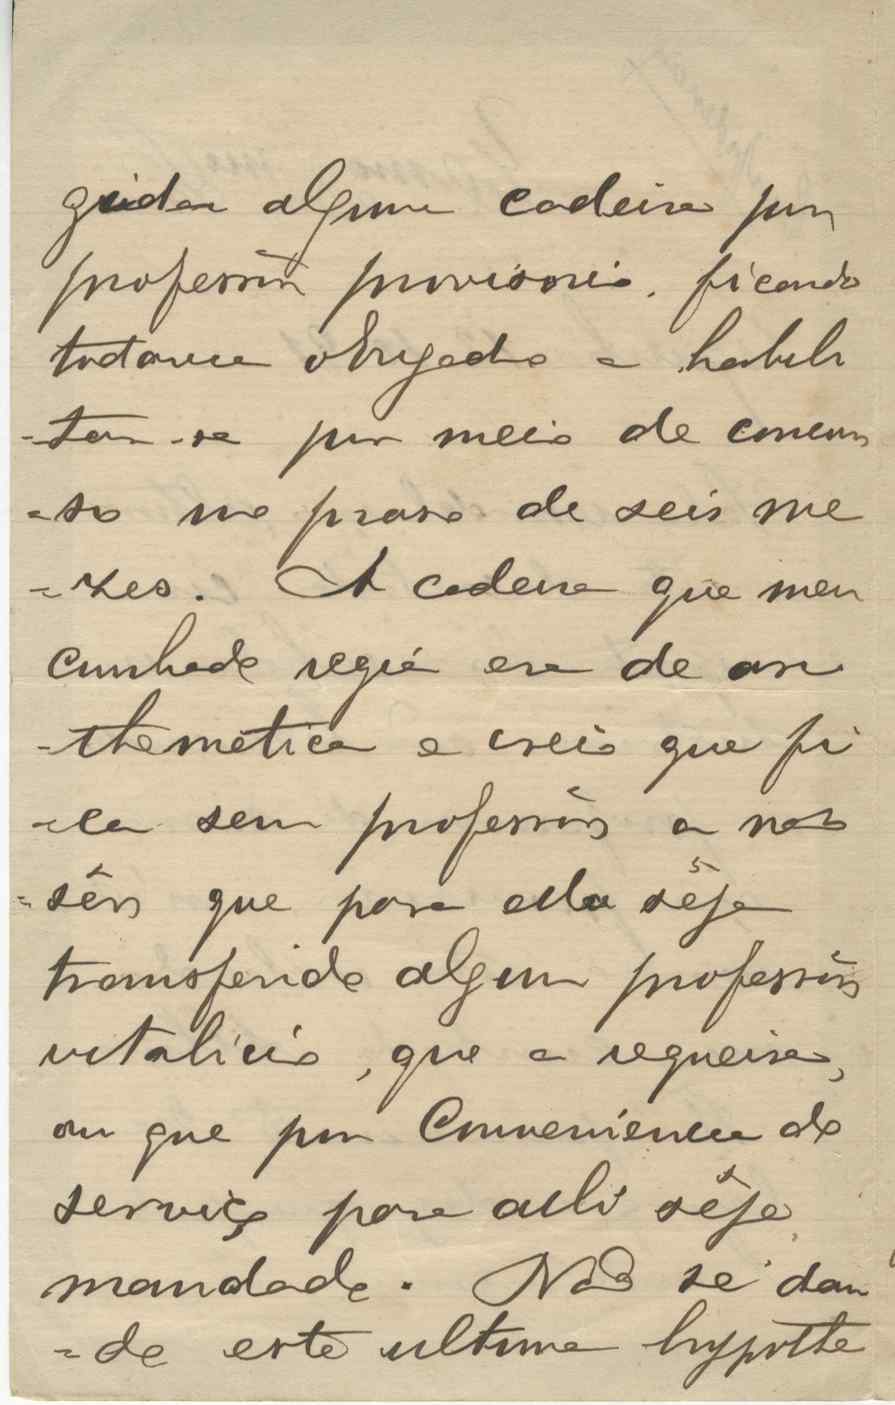 gida alguma cadeira por
professôr provisorio, ficando
todavia obrigado a habili
-tar-se por meio de concur
-so no praso de seis me
-zes. A cadeira que meu
cunhado regía era de ari
-thmetica e creio que fi
-ca sem professôr a não
-sêr que para ella sêja
transferido algum professôr
vitalicio, que a requeira,
ou que por conveniencia do
serviço para alli sêja
mandado. Não se dan
-do esta ultima hypothe